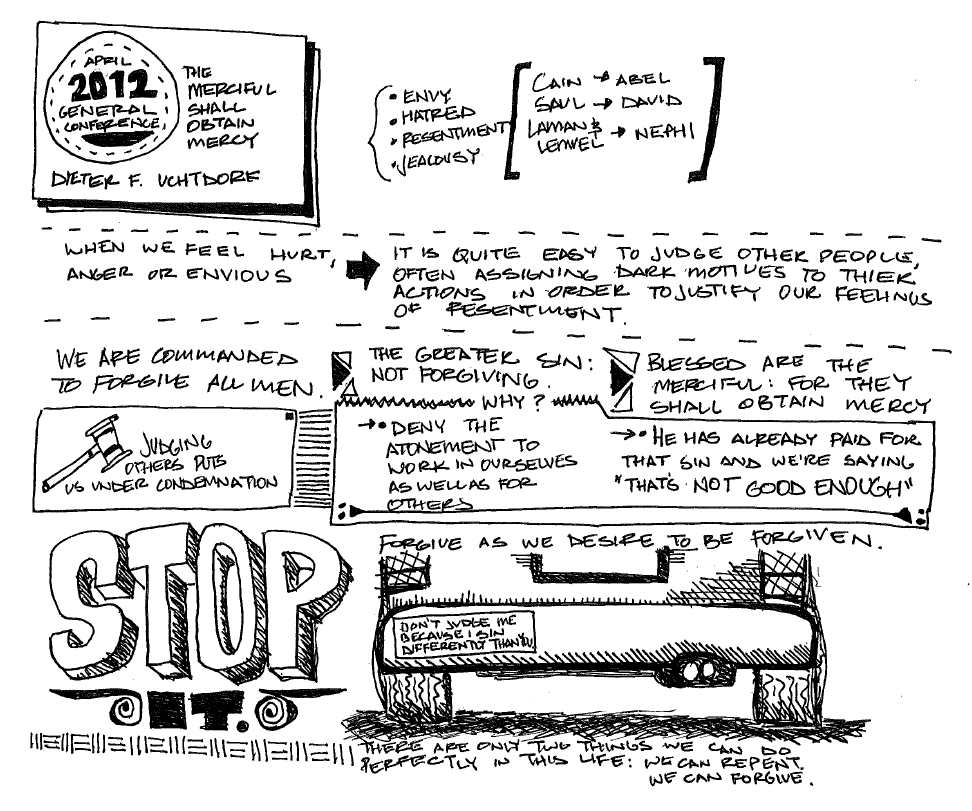 APRIL
2012
GENERAL
CONFERENCE
THE
MERCIFUL
SHALL
OBTAIN
MERCY
DIETER F. UCHTDORF
• ENVY
• HATRED
• RESENTMENT
• JEALOUSY
CAIN → ABEL
SAUL → DAVID
LAMAN &
LEMUEL → NEPHI
WHEN WE FEEL HURT,
ANGER OR ENVIOUS
IT IS QUITE EASY TO JUDGE OTHER PEOPLE,
OFTEN ASSIGNING DARK MOTIVES TO THIER
ACTIONS IN ORDER TO JUSTIFY OUR FEELINGS
OF RESENTMENT.
WE ARE COMMANDED
TO FORGIVE ALL MEN.
THE GREATER SIN:
NOT FORGIVING.
BLESSED ARE THE
MERCIFUL: FOR THEY
SHALL OBTAIN MERCY
JUDGING
OTHERS PUTS
US UNDER CONDEMNATION
WHY?
→ • DENY THE
ATONEMENT TO
WORK IN OURSELVES
AS WELL AS FOR
OTHERS
→ • HE HAS ALREADY PAID FOR
THAT SIN AND WE'RE SAYING
"THAT'S NOT GOOD ENOUGH"
STOP
IT.
FORGIVE AS WE DESIRE TO BE FORGIVEN.
DON'T JUDGE ME
BECAUSE I SIN
DIFFERENTLY THAN YOU
THERE ARE ONLY TWO THINGS WE CAN DO
PERFECTLY IN THIS LIFE: WE CAN REPENT.
WE CAN FORGIVE.